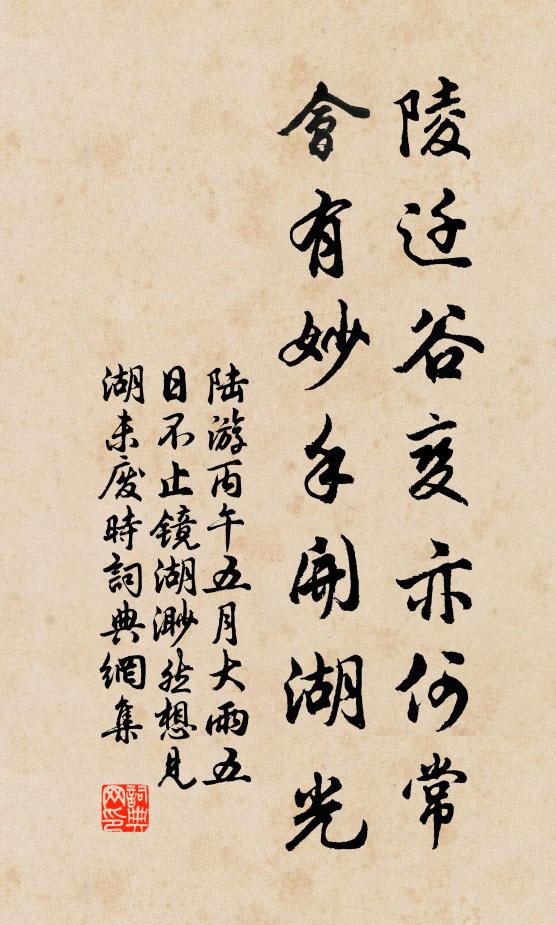 陵迁谷变亦何常
會有妙手開湖光
陆游丙午五月大雨五
日不止镜湖渺然想見
湖未废時詞典網集
詞典
网印